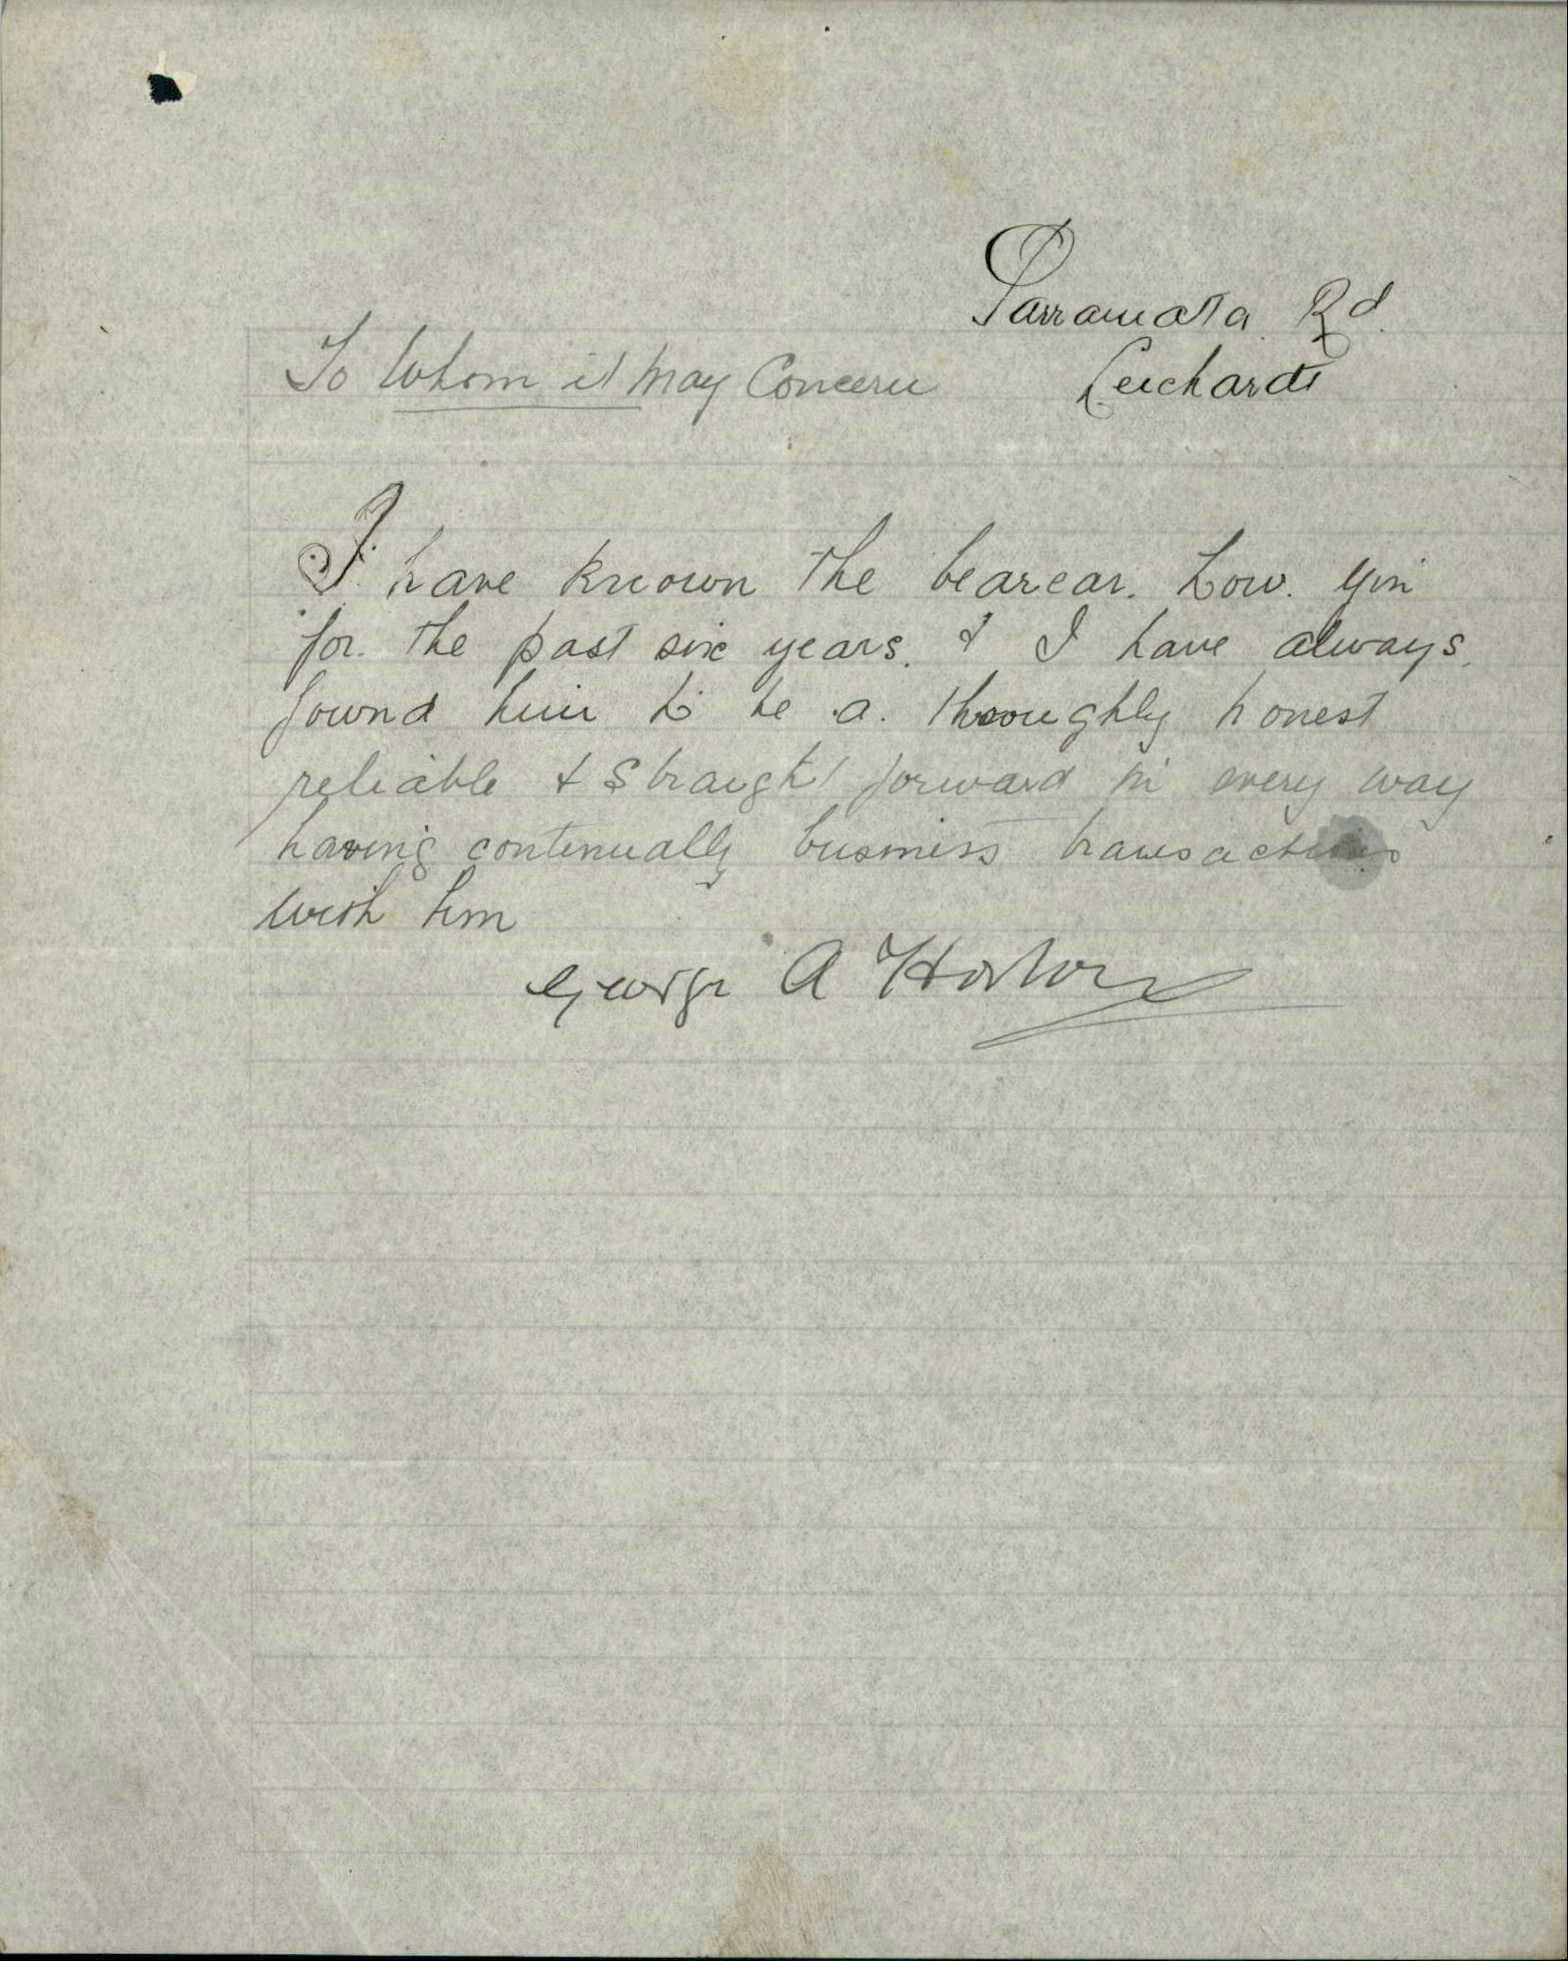 Parramatta Rd.
To Whom it May Concern
Leichardt
I have known the bearear. Low. Yin
for. the past six years. & I have always.
found him to be a. thoroughly honest
reliable & Straight forward in every way
having continually business transactions
with him
George A Horton